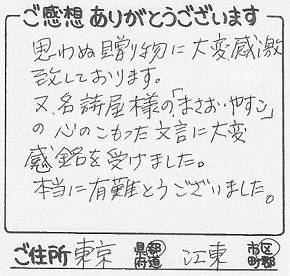 ご感想ありがとうございます
思わぬ贈り物に大変感激
致しております。
又、名詩屋様の「まさお・やすこ」
の心のこもった文言に大変
感銘を受けました。
本当に有難とうございました。
ご住所 東京 都道府県 江東 市区町郡